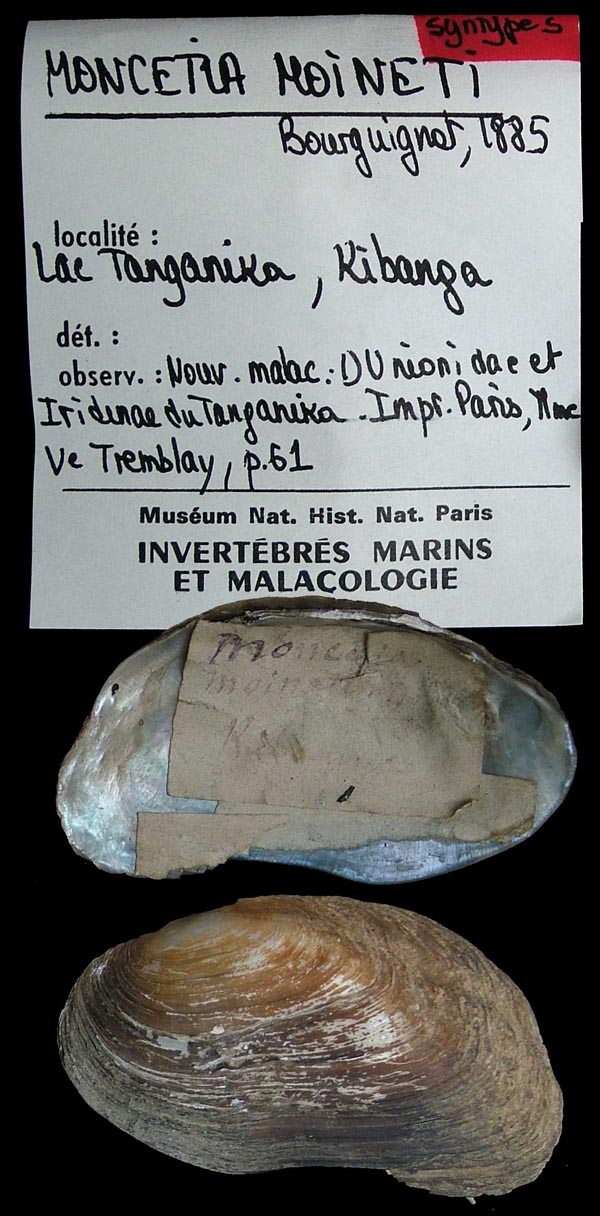 syntypes
MONCETIA MOINETI
Bourguignat, 1885
localité :
Lac Tanganika, Kibanga
dét. :
observ. : Nouv. malac. : I) Unionidae et
Iridinae du Tanganika. Impr. Paris, Mme
Ve Tremblay, p.61
Muséum Nat. Hist. Nat. Paris
INVERTÉBRÉS MARINS
ET MALACOLOGIE